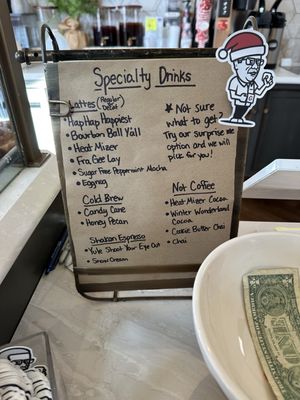 Specialty Drinks
Lattes (Regular/Decaf)
• HapHap Happiest
• Bourbon Ball Y'all
• Heat Mizer
• Fra Gee Lay
• Sugar Free Peppermint Mocha
• Eggnog
Cold Brew
• Candy Cane
• Honey Pecan
Shaken Espresso
• Yule Shoot Your Eye Out
• Snow Cream
* Not Sure
what to get?
Try our Surprise me
option and we will
pick for you!
Not Coffee
• Heat Mizer Cocoa
• Winter Wonderland
Cocoa
• Cookie Butter Chai
• Chai